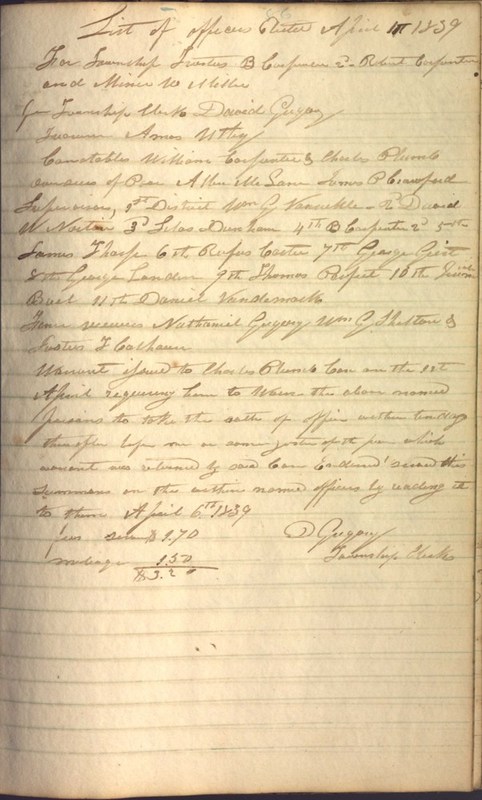 List of officers Elected April 1st 1839
For Township Trustees B Carpenter 2d Robert Carpenter
and Miner W
For Township Clerk David Gregory
Treasurer Amos Utley
Constables William Carpenter & Charles Plumb
of Peace Allen McLane James P Crawford
Supervisors, 1st District Wm G 2d David
W 3d Silas Dunham 4th B Carpenter 2d 5th
James Tharp 6th Rufus Carter 7th George Gist
8th George Landon 9th Thomas Perfect 10th
Buel 11th Daniel Vandemark
Fence viewers Nathaniel Gregory Wm G Shelton &
Foster F Calhoun
Warrant issued to Charles Plumb Con on the 1st
April requiring him to Warn the above named
persons to take the oaths of office within ten days
thereafter before me or some justice of the peace which
warrant was returned by said Con Endorsed served this
summons on the within named officers by reading it
to them April 6th 1839
fees serv $1.70 D Gregory
mileage 1.50 Township Clerk
$3.20